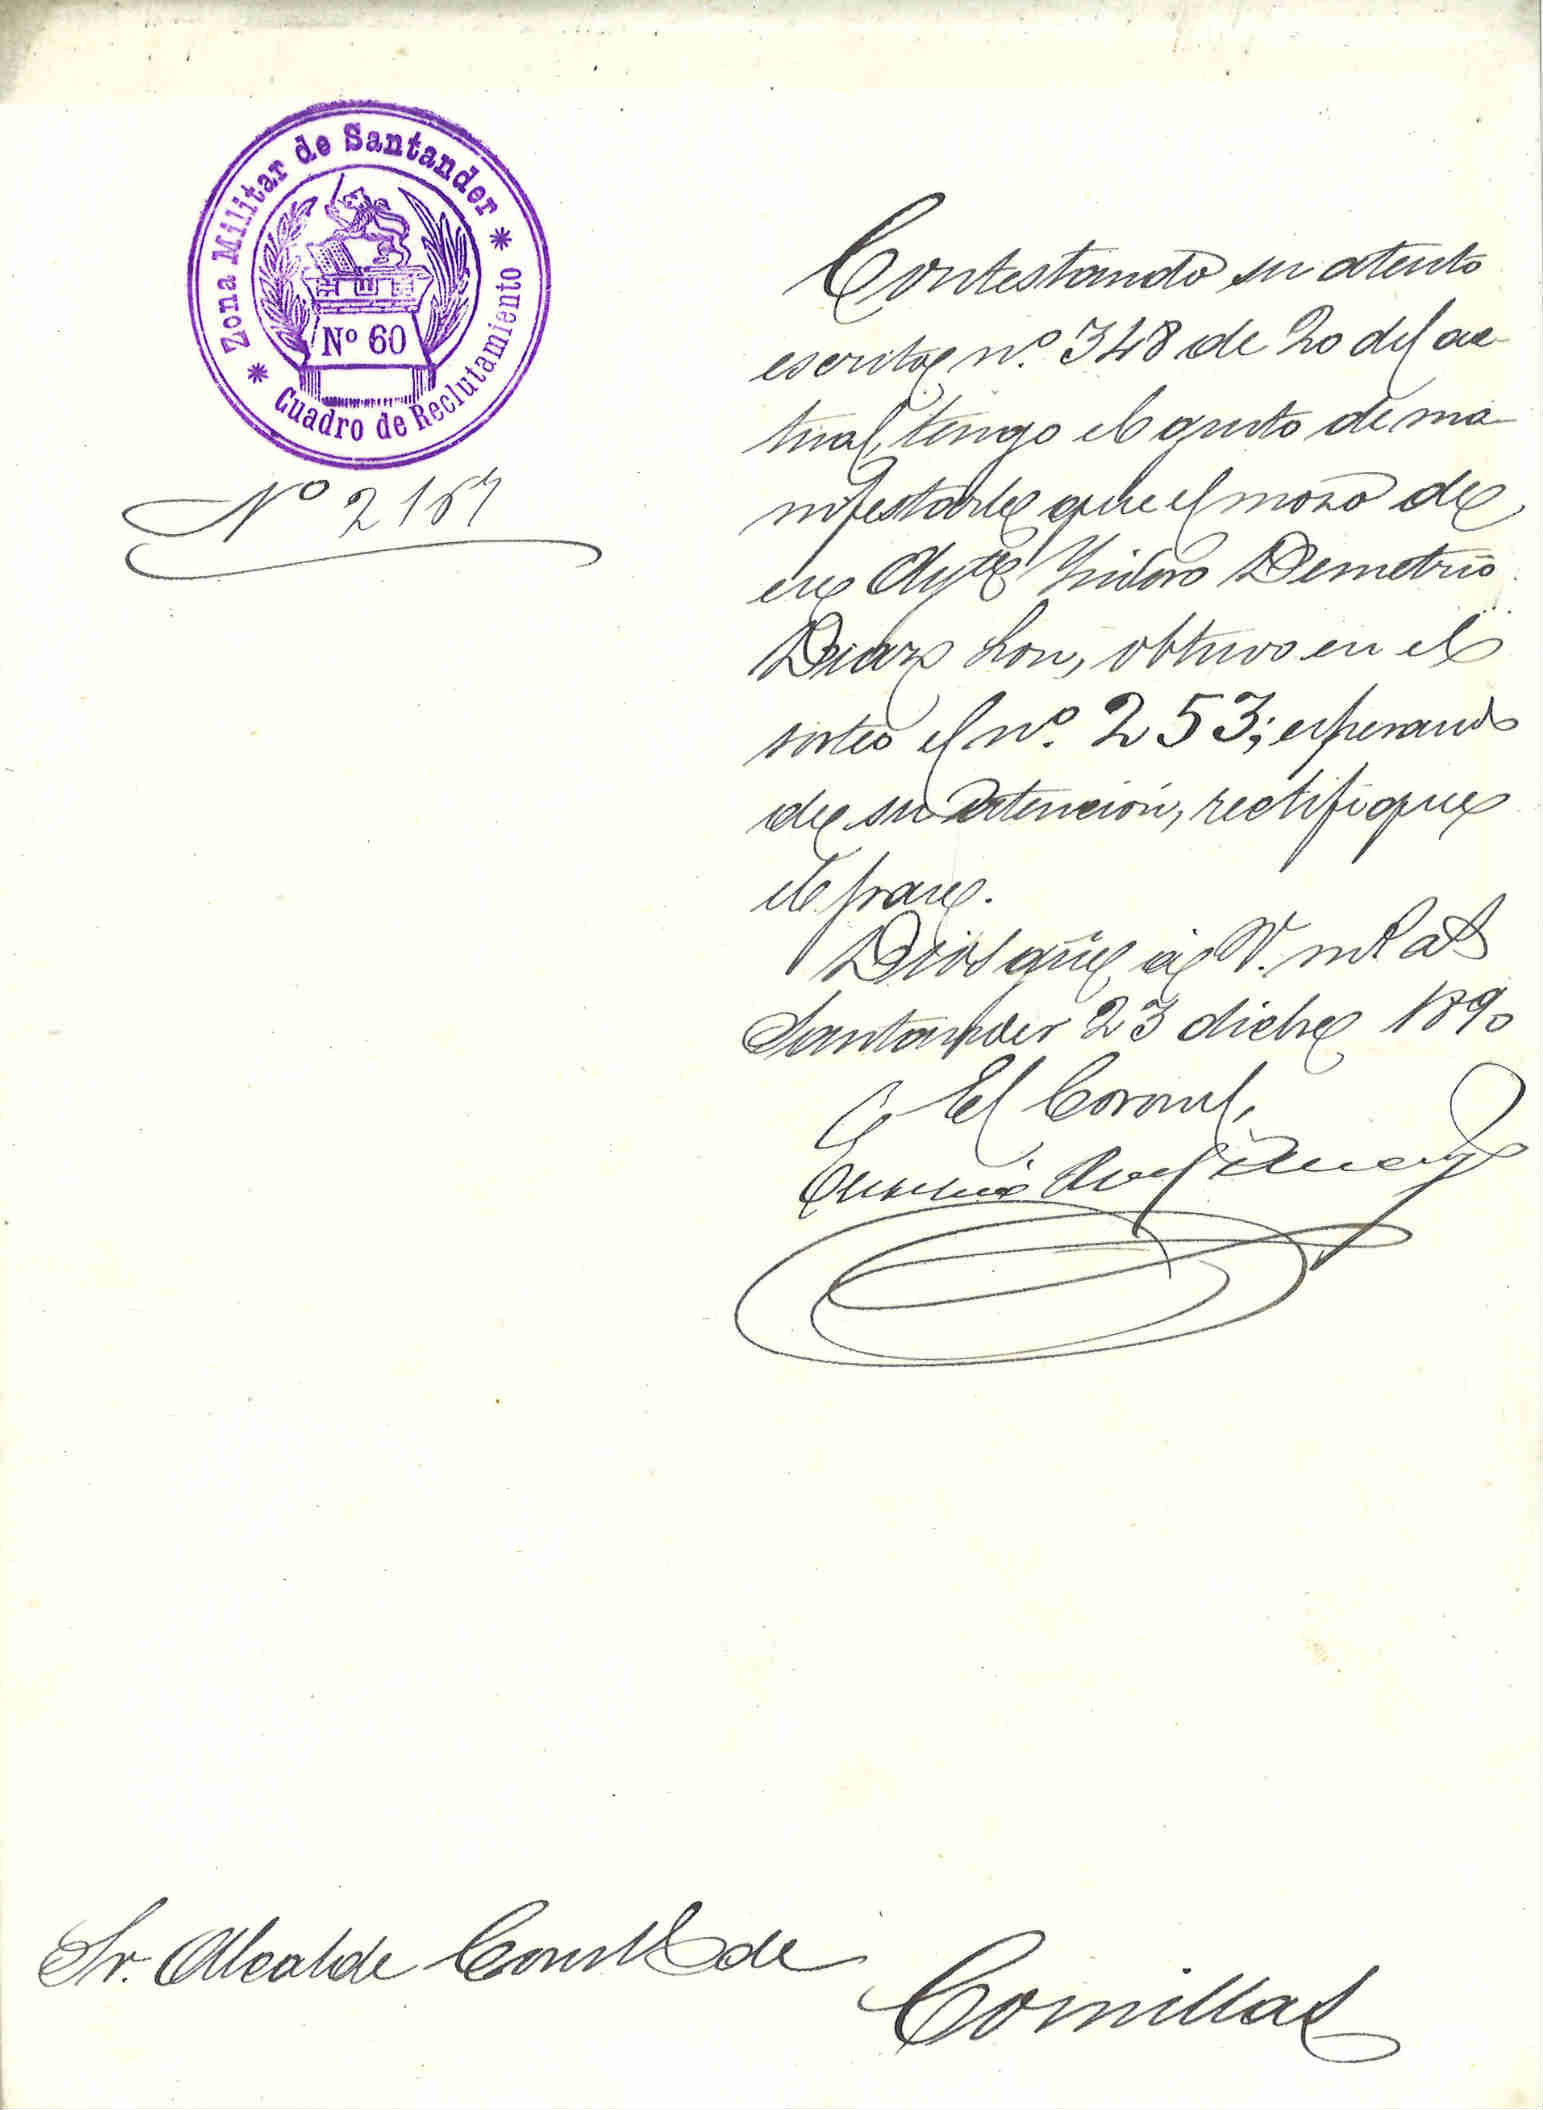 Zona Militar de Santander
Nº 60
Cuadro de Reclutamiento
Nº 2167
Contestando su atento
escrito nº. 348 de 20 del ac-
tual, tengo el gusto de ma-
nifestarle que el mozo de
ese Ayto Isidoro Demetrio
Diaz Son, obtuvo en el
sorteo el nº. 253; esperando
de su atención, rectifique
el
Dios güe á V. ms as
Santander 23 dicbre 1890
El Coronel,
Sr. Alcalde Constl de
Comillas